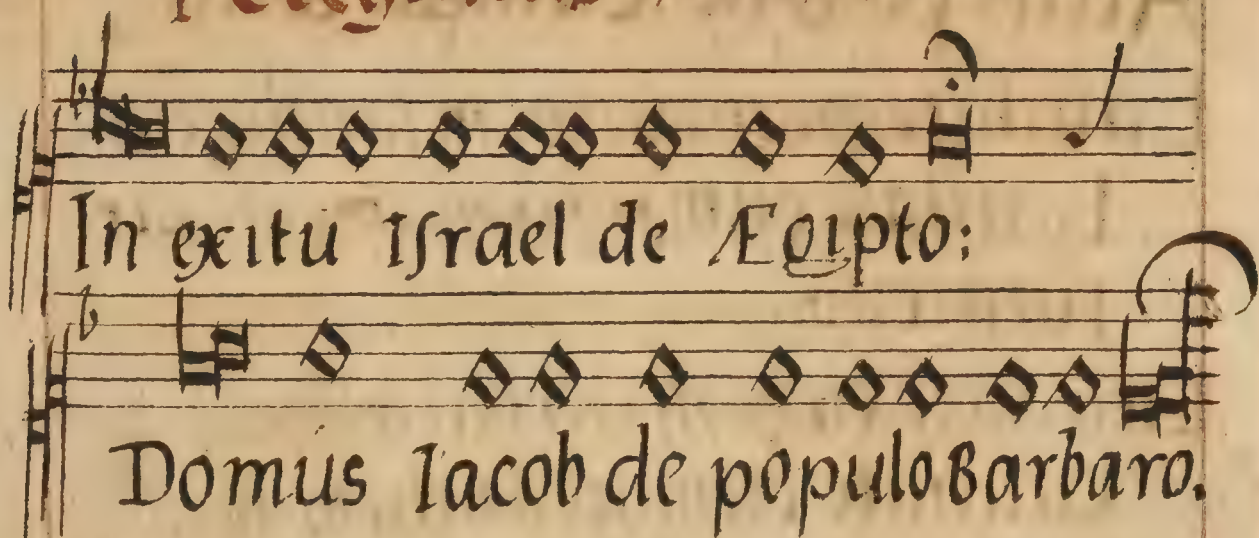 In exitu Iſrael de Ægipto:
Domus Iacob de populo Barbaro.